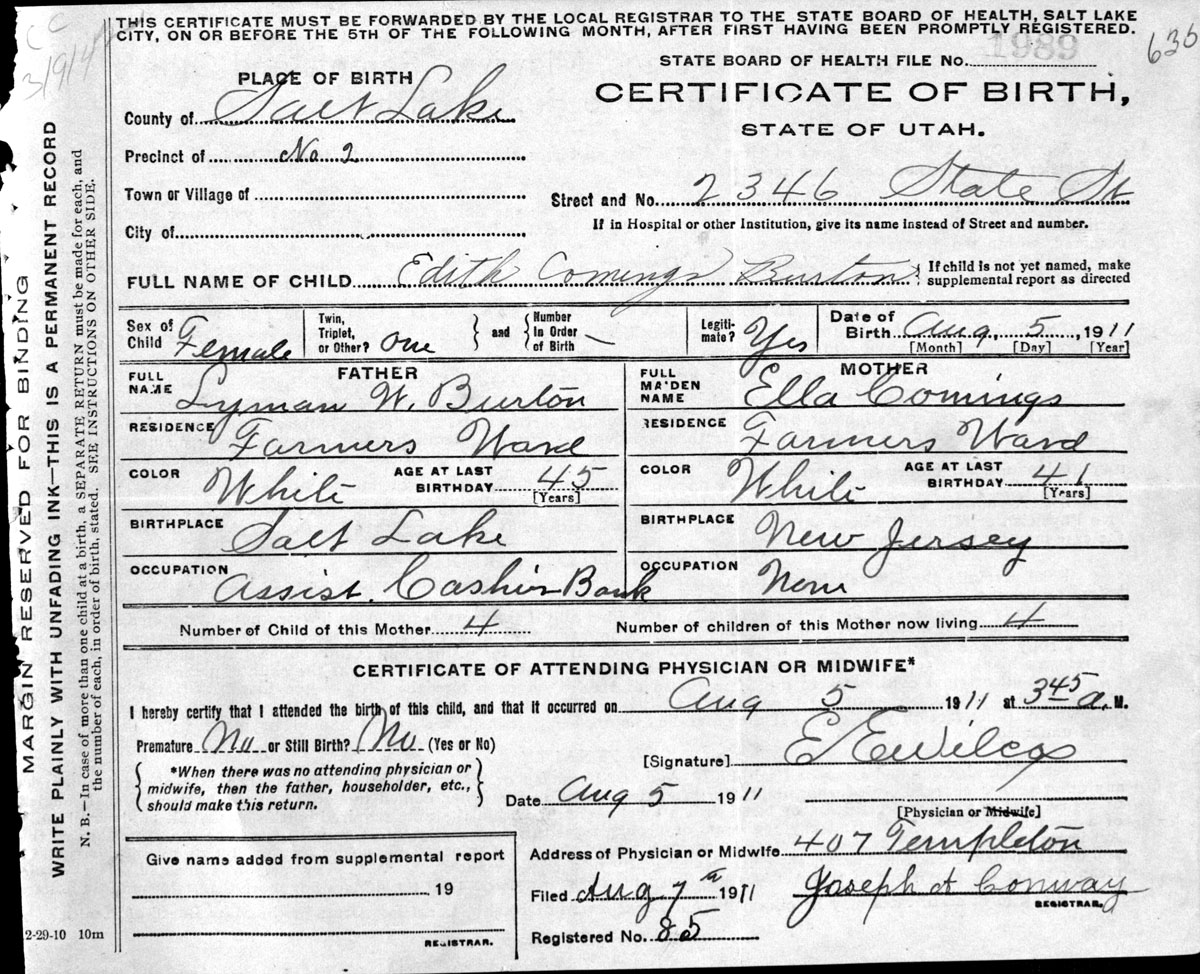 THIS CERTIFICATE MUST BE FORWARDED BY THE LOCAL REGISTRAR TO THE STATE BOARD OF HEALTH, SALT LAKE
CITY, ON OR BEFORE THE 5TH OF THE FOLLOWING MONTH, AFTER FIRST HAVING BEEN PROMPTLY REGISTERED.
CC
3/9/4
635
1989
STATE BOARD OF HEALTH FILE No.
PLACE OF BIRTH
CERTIFICATE OF BIRTH,
STATE OF UTAH.
County of Salt Lake
Precinct of No 2
Town or Village of
Street and No. 2346 State St
City of
If in Hospital or other Institution, give its name instead of Street and number.
FULL NAME OF CHILD Edith Comings Burton
If child is not yet named, make
supplemental report as directed
Sex of Child Female
Twin, Triplet, or Other? one
and
Number In Order of Birth —
Legiti-mate? Yes
Date of Birth Aug 5, 1911
[Month] [Day] [Year]
FATHER
FULL NAME Lyman W. Burton
RESIDENCE Farmers Ward
COLOR White AGE AT LAST BIRTHDAY 45
[Years]
BIRTHPLACE Salt Lake
OCCUPATION Assist. Cashier Bank
MOTHER
FULL MAIDEN NAME Ella Comings
RESIDENCE Farmers Ward
COLOR White AGE AT LAST BIRTHDAY 41
[Years]
BIRTHPLACE New Jersey
OCCUPATION None
Number of Child of this Mother 4 Number of children of this Mother now living 4
CERTIFICATE OF ATTENDING PHYSICIAN OR MIDWIFE*
I hereby certify that I attended the birth of this child, and that it occurred on Aug 5 1911 at 345 a. M.
Premature No or Still Birth? No (Yes or No)
[Signature] E E Wilcox
*When there was no attending physician or
midwife, then the father, householder, etc.,
should make this return.
Date Aug 5 1911
[Physician or Midwife]
Address of Physician or Midwife 407 Templeton
Give name added from supplemental report
19
REGISTRAR.
Filed Aug 7th 1911 Joseph A Conway
REGISTRAR.
Registered No. 85
2-29-10 10m
MARGIN RESERVED FOR BINDING
WRITE PLAINLY WITH UNFADING INK—THIS IS A PERMANENT RECORD
N. B.—In case of more than one child at a birth, a SEPARATE RETURN must be made for each, and
the number of each, in order of birth, stated. SEE INSTRUCTIONS ON OTHER SIDE.